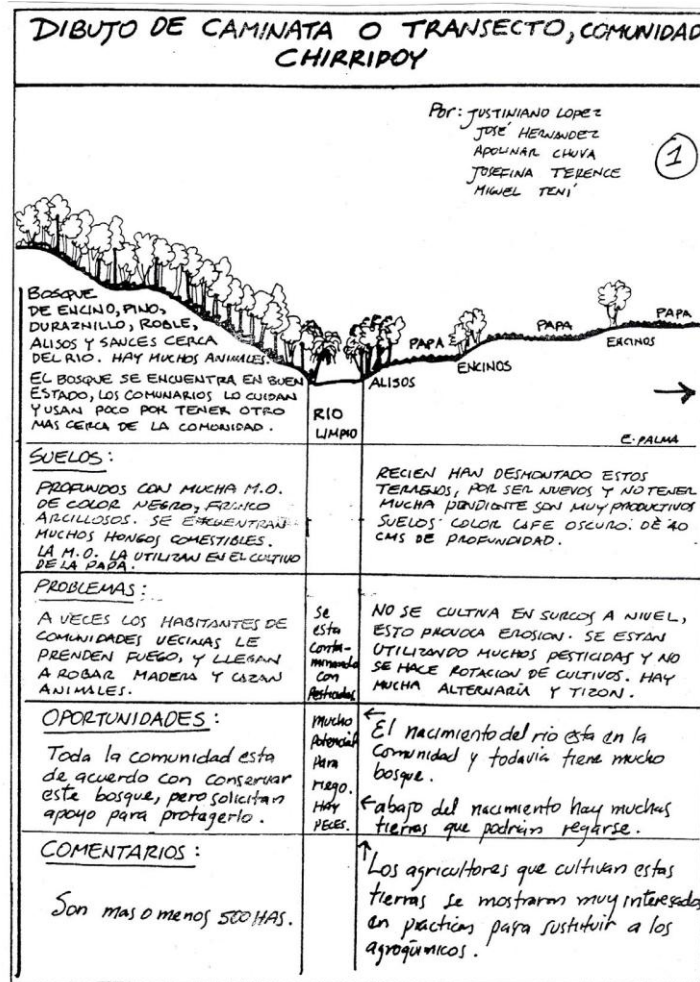 DIBUJO DE CAMINATA O TRANSECTO, COMUNIDAD
CHIRRIPOY
Por: JUSTINIANO LOPEZ
JOSÉ HERNANDEZ
APOLINAR CHUVA
JOSEFINA TERENCE
MIGUEL TENÍ
1
BOSQUE
DE ENCINO, PINO,
DURAZNILLO, ROBLE,
ALISOS Y SAUCES CERCA
DEL RIO. HAY MUCHOS ANIMALES.
EL BOSQUE SE ENCUENTRA EN BUEN
ESTADO, LOS COMUNARIOS LO CUIDAN
Y USAN POCO POR TENER OTRO
MAS CERCA DE LA COMUNIDAD.
RIO
LIMPIO
ALISOS
PAPA
ENCINOS
PAPA
ENCINOS
PAPA
E. PALMA
SUELOS:
PROFUNDOS CON MUCHA M.O.
DE COLOR NEGRO, FRANCO
ARCILLOSOS. SE ENCUENTRAN
MUCHOS HONGOS COMESTIBLES.
LA M.O. LA UTILIZAN EN EL CULTIVO
DE LA PAPA.
RECIEN HAN DESMONTADO ESTOS
TERRENOS, POR SER NUEVOS Y NO TENER
MUCHA PENDIENTE SON MUY PRODUCTIVOS
SUELOS COLOR CAFE OSCURO. DE 40
CMS DE PROFUNDIDAD.
PROBLEMAS:
A VECES LOS HABITANTES DE
COMUNIDADES VECINAS LE
PRENDEN FUEGO, Y LLEGAN
A ROBAR MADERA Y CAZAN
ANIMALES.
Se
esta
conta-
minando
con
Pesticidas
NO SE CULTIVA EN SURCOS A NIVEL,
ESTO PROVOCA EROSION. SE ESTAN
UTILIZANDO MUCHOS PESTICIDAS Y NO
SE HACE ROTACION DE CULTIVOS. HAY
MUCHA ALTERNARIA Y TIZON.
OPORTUNIDADES:
Toda la comunidad esta
de acuerdo con conservar
este bosque, pero solicitan
apoyo para protegerlo.
mucho
Potencial
Para
riego.
HAY
PECES.
← El nacimiento del rio esta en la
Comunidad y todavia tiene mucho
bosque.
← abajo del nacimiento hay muchas
tierras que podrian regarse.
COMENTARIOS:
Son mas o menos 500 HAS.
↑ Los agricultores que cultivan estas
tierras se mostraron muy interesados
en practicas para sustituir a los
agroquimicos.